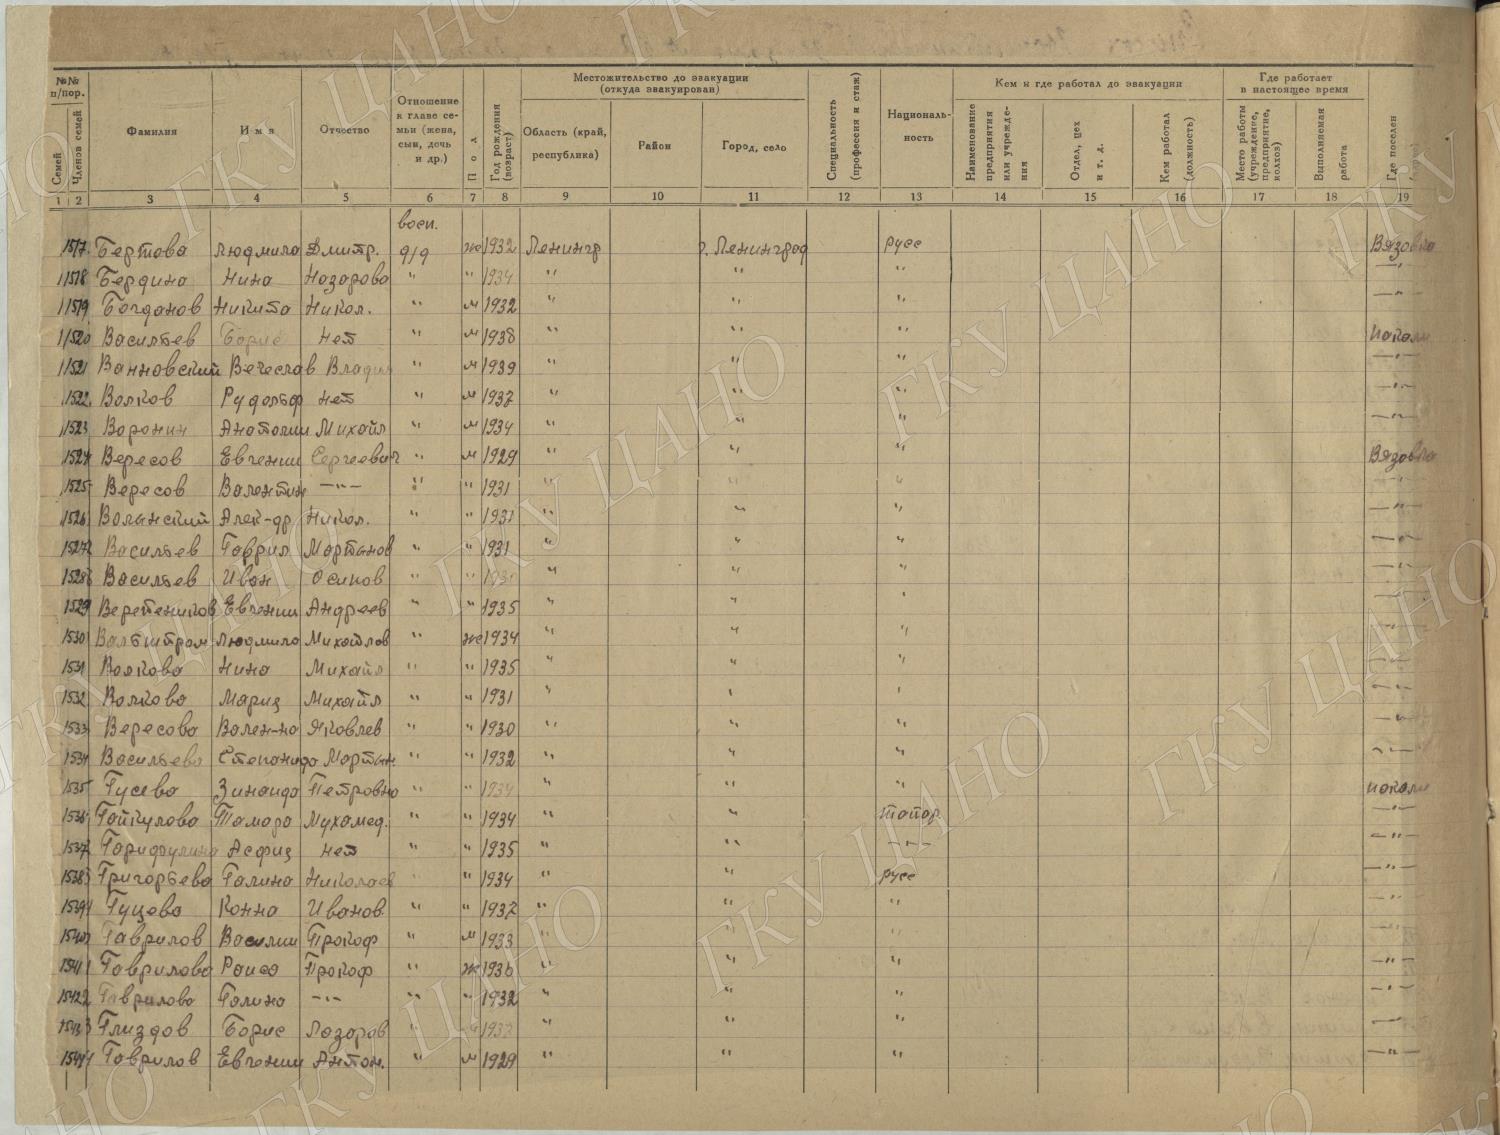 №№ п/пор.
Семей
Членов семей
Фамилия
Имя
Отчество
Отношение к главе семьи (жена, сын, дочь и др.)
Пол
Год рождения (возраст)
Местожительство до эвакуации (откуда эвакуирован)
Область (край, республика)
Район
Город, село
Специальность (профессия и стаж)
Национальность
Кем и где работал до эвакуации
Наименование предприятия или учреждения
Отдел, цех и т. д.
Кем работал (должность)
Где работает в настоящее время
Место работы (учреждение, предприятие, колхоз)
Выполняемая работа
Где поселен
1 2 3 4 5 6 7 8 9 10 11 12 13 14 15 16 17 18 19
восп.
1517 Бертова Людмила Дмитр. д/д ж 1932 Ленингр г. Ленинград русс Вязовка
1518 Бердина Нина Назарова " " 1934 " " " —"—
1519 Богданов Никита Никол. " м 1932 " " " —"—
1520 Васильев Борис нет " м 1938 " " "
1521 Ванновский Вечеслав Владим " м 1939 " " " —"—
1522 Волков Рудольф нет " м 1937 " " " —"—
1523 Воронин Анатолии Михайл " м 1934 " " " —"—
1524 Вересов Евгении Сергеевич " м 1929 " " " Вязовка
1525 Вересов Валентин —"— " " 1931 " " " —"—
1526 Волынский Алек-др Никол. " " 1931 " " " —"—
1527 Васильев Гаврил Мартынов " " 1931 " " " —"—
1528 Васильев Иван Осипов " " " " " —"—
1529 Веретеников Евгении Андреев " " 1935 " " " —"—
1530 Вальштром Людмила Михайлов " ж 1934 " " " —"—
1531 Волкова Нина Михайл " " 1935 " " " —"—
1532 Волкова Мария Михайл " " 1931 " " " —"—
1533 Вересова Вален-на Яковлев " " 1930 " " " —"—
1534 Васильева Степанида Мартын. " " 1932 " " " —"—
1535 Гусева Зинаида Петровна " " 1934 " " "
1536 Гайкулова Тамара Мухамед. " " 1934 " " татар. —"—
1537 Гарифулина Асфия нет " " 1935 " " —"— —"—
1538 Григорьева Галина Николаев " " 1934 " " русс —"—
1539 Гуцева Ханна Иванов " " 1937 " " " —"—
1540 Гаврилов Василии Прокоф " м 1933 " " " —"—
1541 Гаврилова Раиса Прокоф " ж 1936 " " " —"—
1542 Гаврилова Галина —"— " " 1932 " " " —"—
1543 Глиздов Борис Лазарев " м 1937 " " " —"—
1544 Гаврилов Евгении Антон. " м 1929 " " " —"—
ГКУ ЦАНО